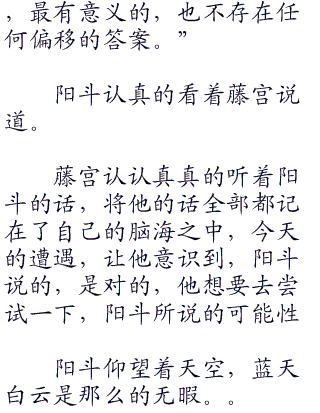 ，最有意义的，也不存在任
何偏移的答案。”
阳斗认真的看着藤宫说
道。
藤宫认认真真的听着阳
斗的话，将他的话全部都记
在了自己的脑海之中，今天
的遭遇，让他意识到，阳斗
说的，是对的，他想要去尝
试一下，阳斗所说的可能性
阳斗仰望着天空，蓝天
白云是那么的无暇。。